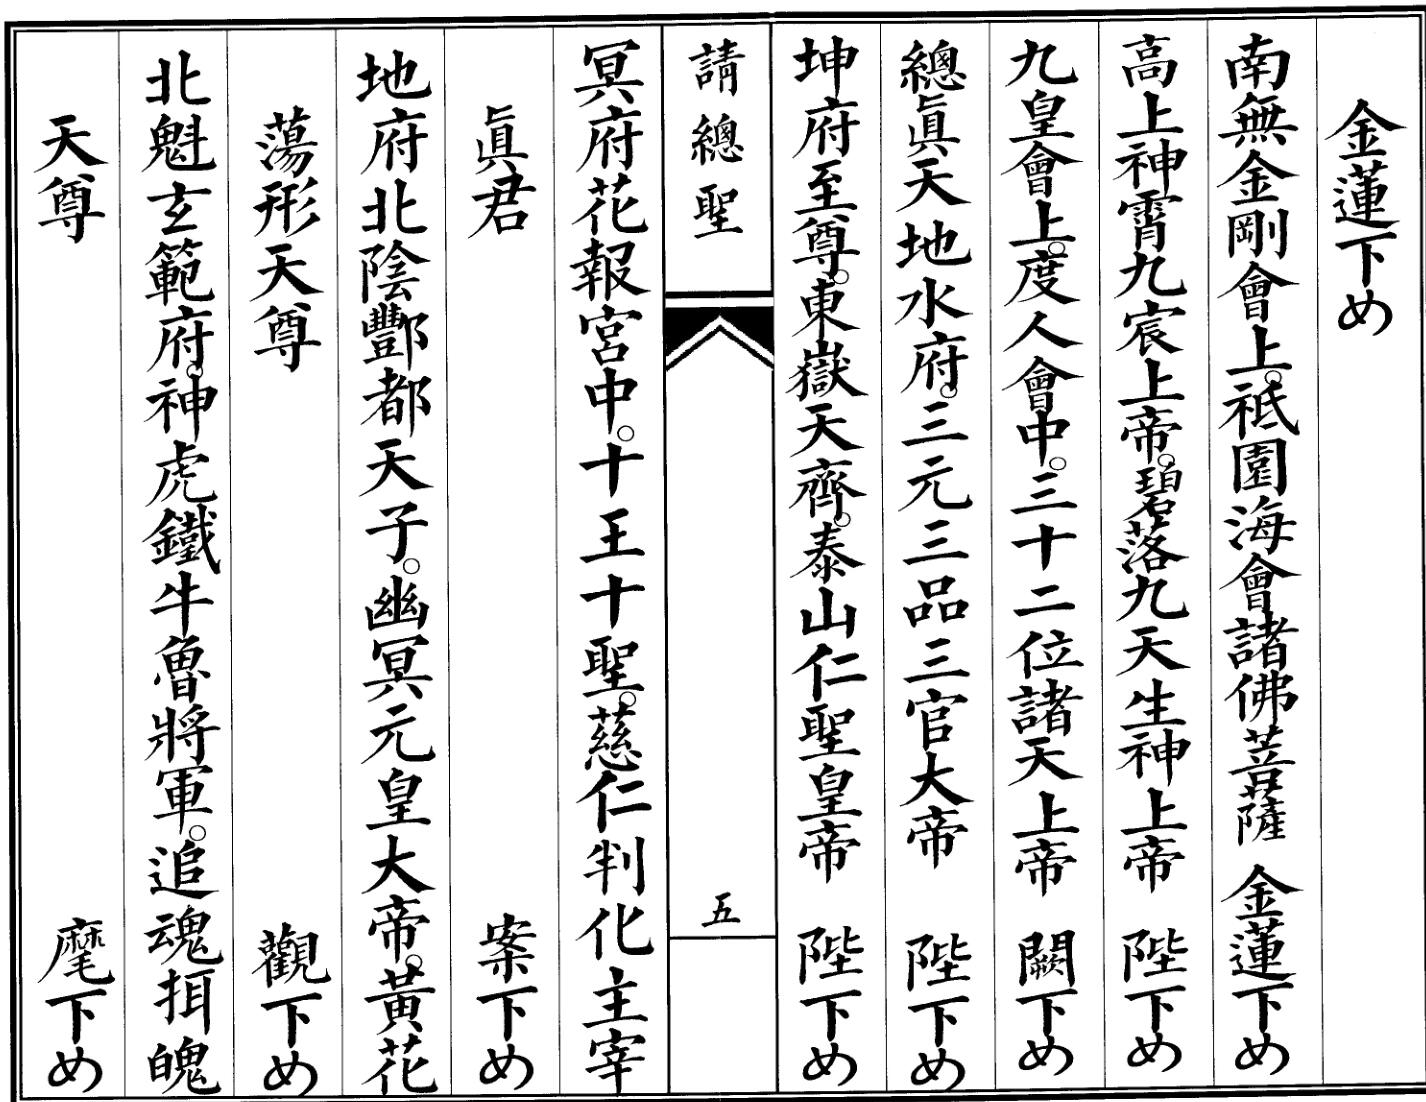 金蓮下め
南無金剛會上。祇園海會諸佛菩薩 金蓮下め
高上神霄九宸上帝。碧落九天生神上帝 陛下め
九皇會上。度人會中。三十二位諸天上帝 闕下め
總眞天地水府。三元三品三官大帝 陛下め
坤府至尊。東嶽天齊。泰山仁聖皇帝 陛下め
請總聖
五
冥府花報宮中。十王十聖。慈仁判化主宰
眞君 案下め
地府北陰酆都天子。幽冥元皇大帝。黃花
蕩形天尊 觀下め
北魁玄範府。神虎鐵牛魯將軍。追魂捪魄
天尊 麾下め